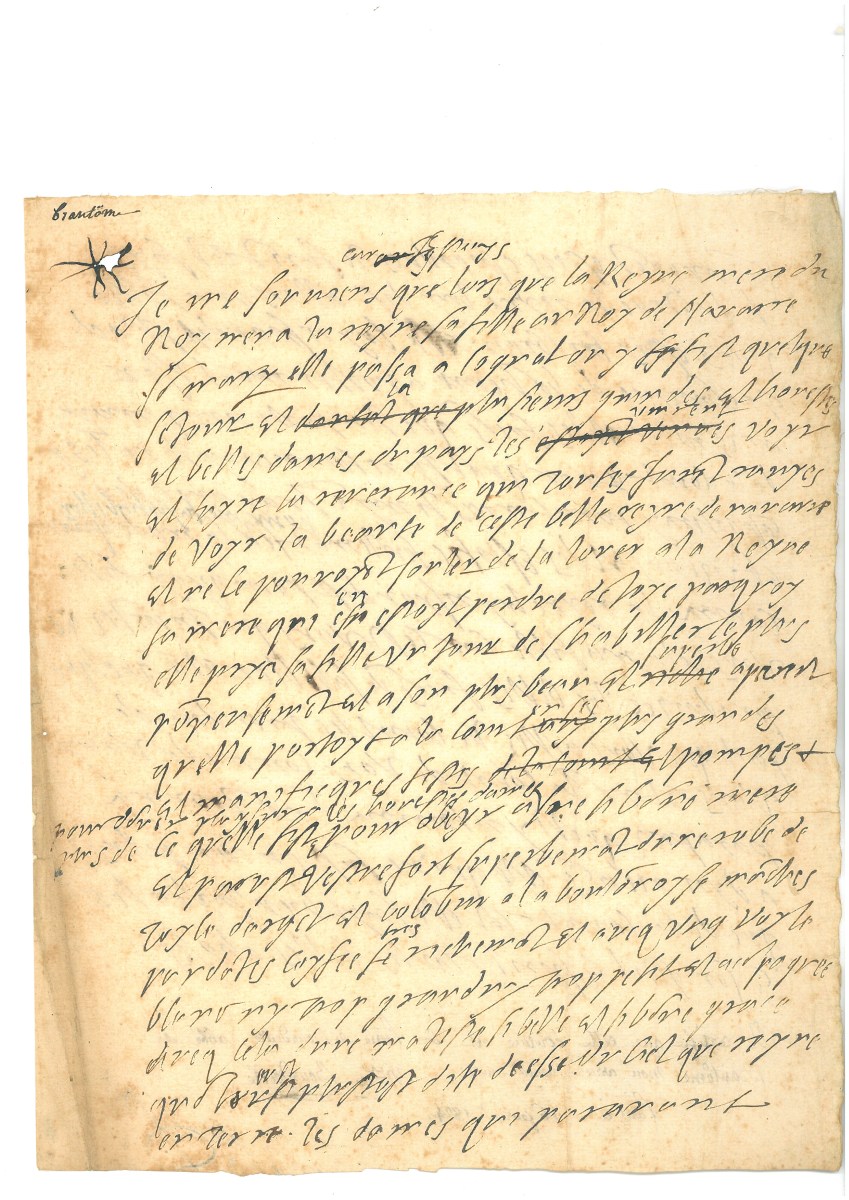 Brantôme
Je me souviens que lors que la Reyne mere du
Roy mena la reyne sa fille au Roy de Navarre
son mary elle passa a Cognat ou y fist quelque
seiour et la plusieurs grandes et honestes
et belles dames du pays les vindrent voyr
et fayre la reverance qui toutes furent ravyes
de voyr la beaute de ceste belle reyne de navarre
et ne se pouvoyent souler de la louer a la Reyne
sa mere qui en estoyt perdue de joye parquoy
elle prya sa fille un jour de s'habiller le plus
pompeusement et a son plus beau et superbe apareil
qu'elle portoyt a la court en ses plus grandes
et manifiques festes et pompes
pour donner plaisir a ces honestes dames
ce qu'elle fist pour obeyr a si bonne mere
et parust vestue fort superbement d'une robe de
toyle d'argent et colombin a la boulonoyse manches
pandantes coyffee tres richement et avec ung voyle
blanc ny trop grand ny trop petit et acompagnee
avec cela d'une majeste si belle et si bonne grace
qu'on l'eust plustost dite deesse du ciel que reyne
en terre. les dames qui paravant